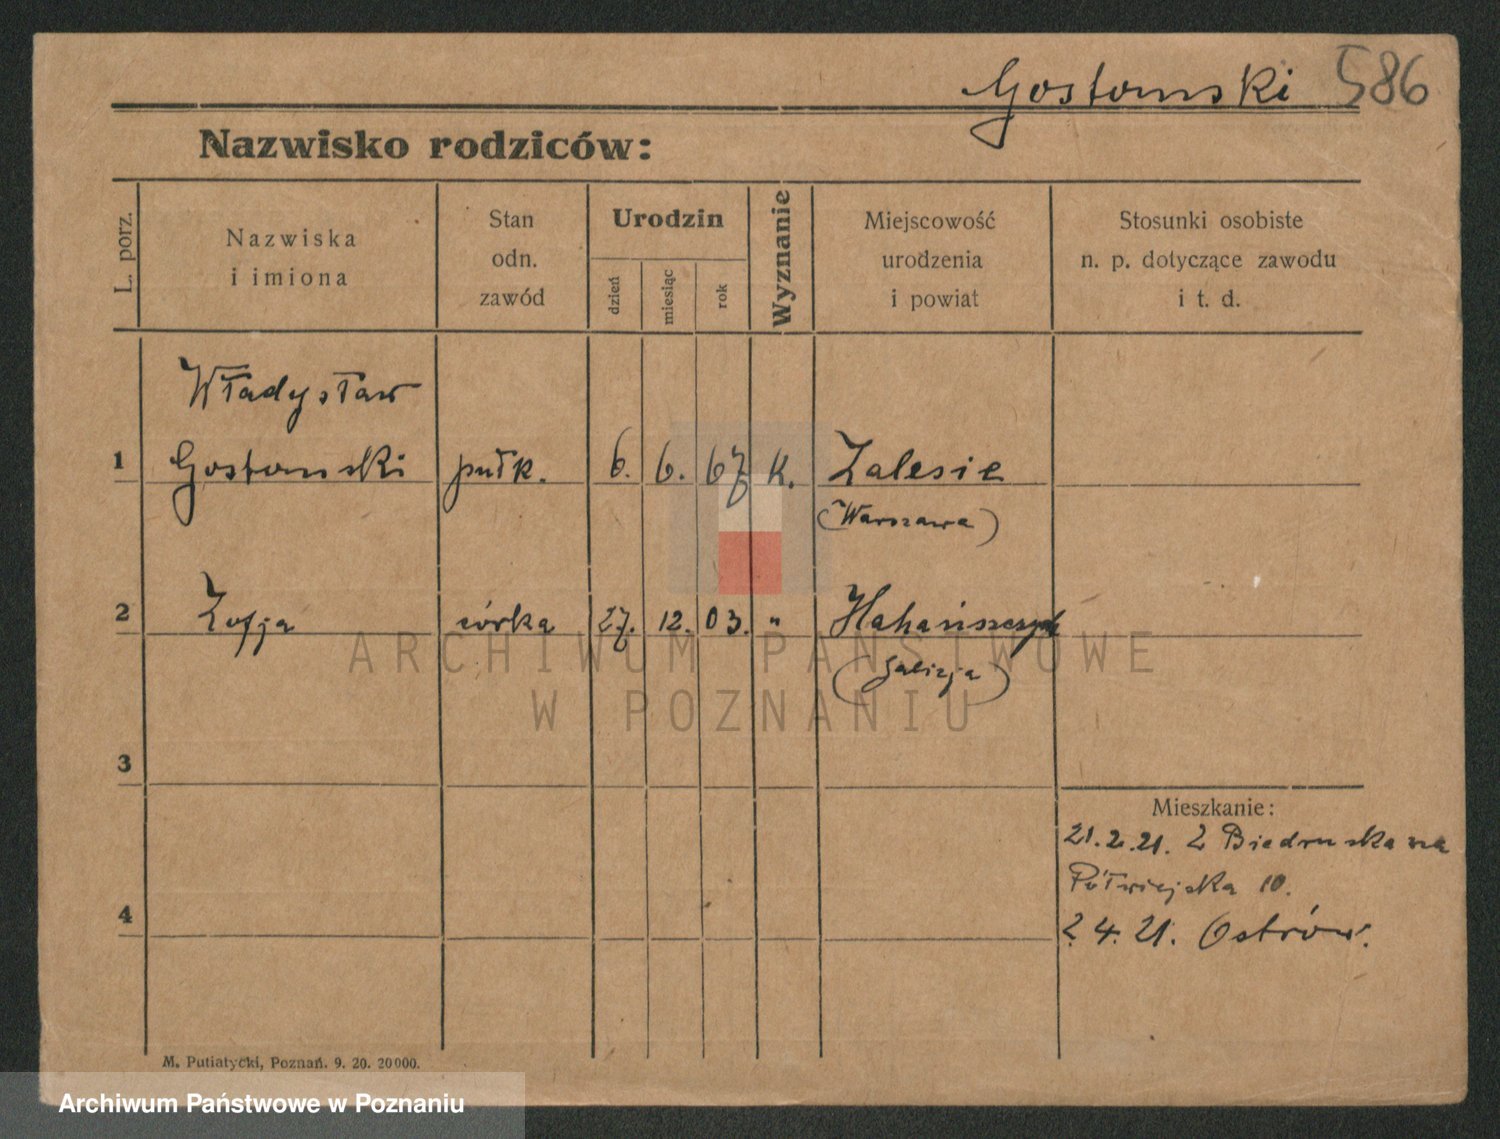 Gostomski 586
Nazwisko rodziców:
L. porz.
Nazwiska
i imiona
Stan
odn.
zawód
Urodzin
dzień
miesiąc
rok
Wyznanie
Miejscowość
urodzenia
i powiat
Stosunki osobiste
n. p. dotyczące zawodu
i t. d.
Władysław
1 Gostomski pułk. 6. 6. 67 K. Zalesie
(Warszawa)
2 Zofja córka 27. 12. 03. "
(Galicja)
ARCHIWUM PAŃSTWOWE
W POZNANIU
3
Mieszkanie:
21.2.21. Z Biedruska na
Półwiejska 10.
4
2.4.21. Ostrów.
M. Putiatycki, Poznań. 9. 20. 20000.
Archiwum Państwowe w Poznaniu